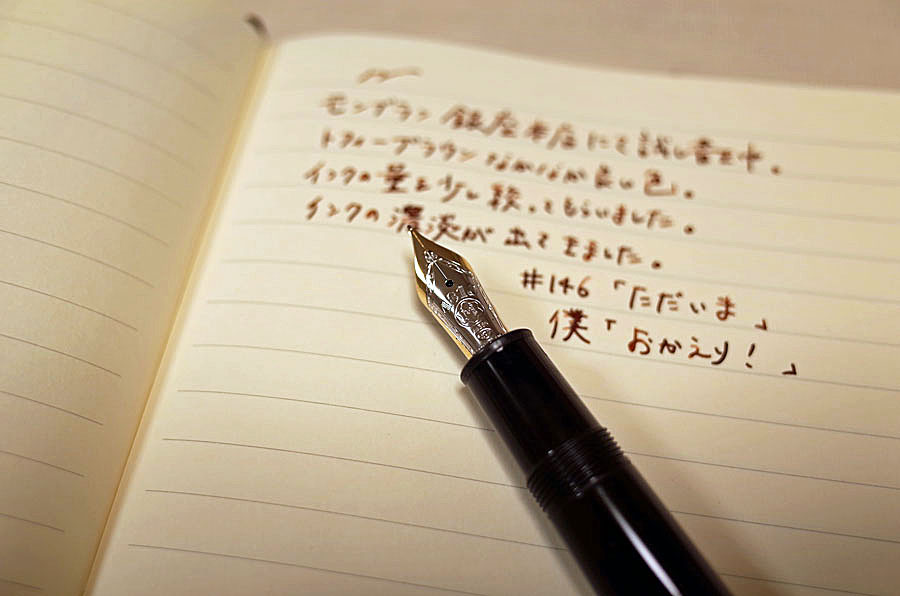 モンブラン銀座本店にて試し書き中。
トフィーブラウンなかなか良い色。
インクの量を少し絞ってもらいました。
インクの濃淡が出てきました。
#146「ただいま」
僕「おかえり!」